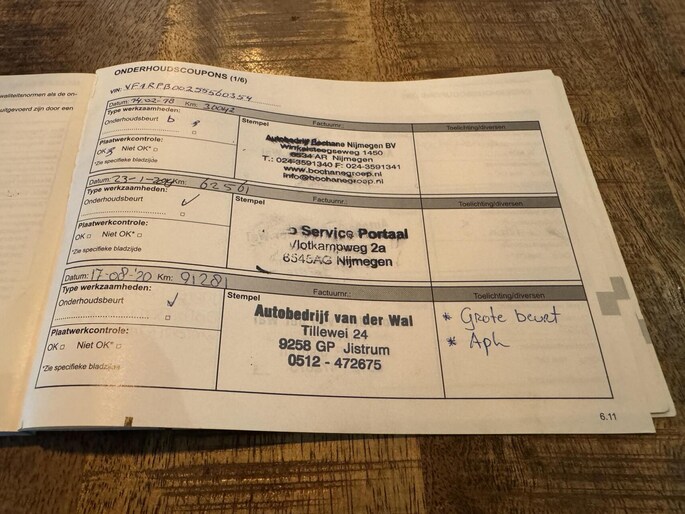 waliteitsnormen als de on-
uitgevoerd zijn door een
ONDERHOUDSCOUPONS (1/6)
VIN: VF1RPB00255560354
Datum: 14-02-18 Km: 30042
Type werkzaamheden:
Onderhoudsbeurt
Plaatwerkcontrole:
OK □ Niet OK* □
*Zie specifieke bladzijde
Stempel Factuurnr.: Toelichting/diversen
Autobedrijf Bochane Nijmegen BV
Winkelsteegseweg 1450
6534 AR Nijmegen
T.: 024-3591340 F: 024-3591341
www.bochanegroep.nl
info@bochanegroep.nl
Datum: 23-1- Km: 62561
Type werkzaamheden:
Onderhoudsbeurt ✓
Plaatwerkcontrole:
OK □ Niet OK* □
*Zie specifieke bladzijde
Stempel Factuurnr.: Toelichting/diversen
o Service Portaal
Vlotkampweg 2a
6545AG Nijmegen
Datum: 17-08-'20 Km: 91281
Type werkzaamheden:
Onderhoudsbeurt ✓
Plaatwerkcontrole:
OK □ Niet OK* □
*Zie specifieke bladzijde
Stempel Factuurnr.: Toelichting/diversen
Autobedrijf van der Wal
Tillewei 24
9258 GP Jistrum
0512 - 472675
* Grote beurt
* Apk
6.11